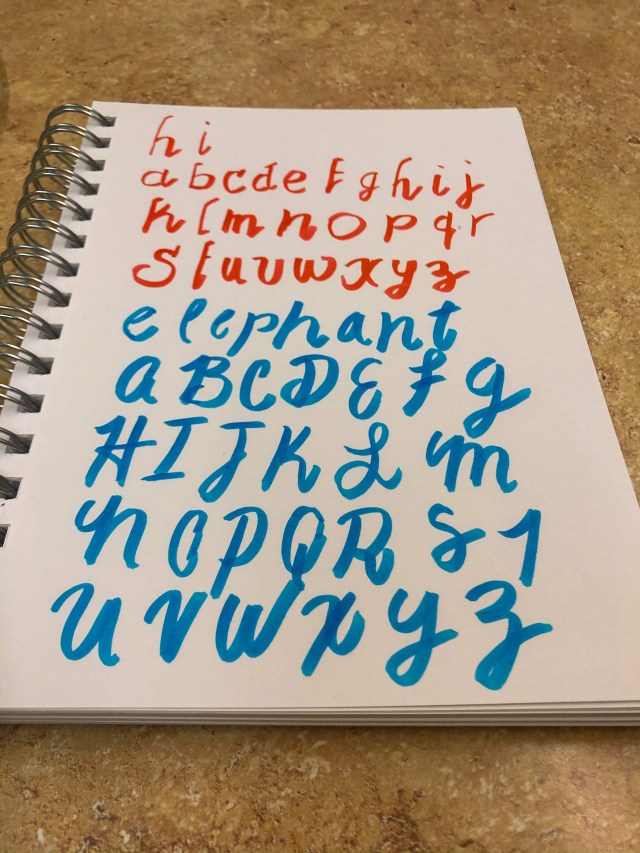 hi
a b c d e f g h i j
k l m n o p q r
s t u v w x y z
elephant
A B C D E F G
H I J K L M
N O P Q R S T
U V W X Y Z